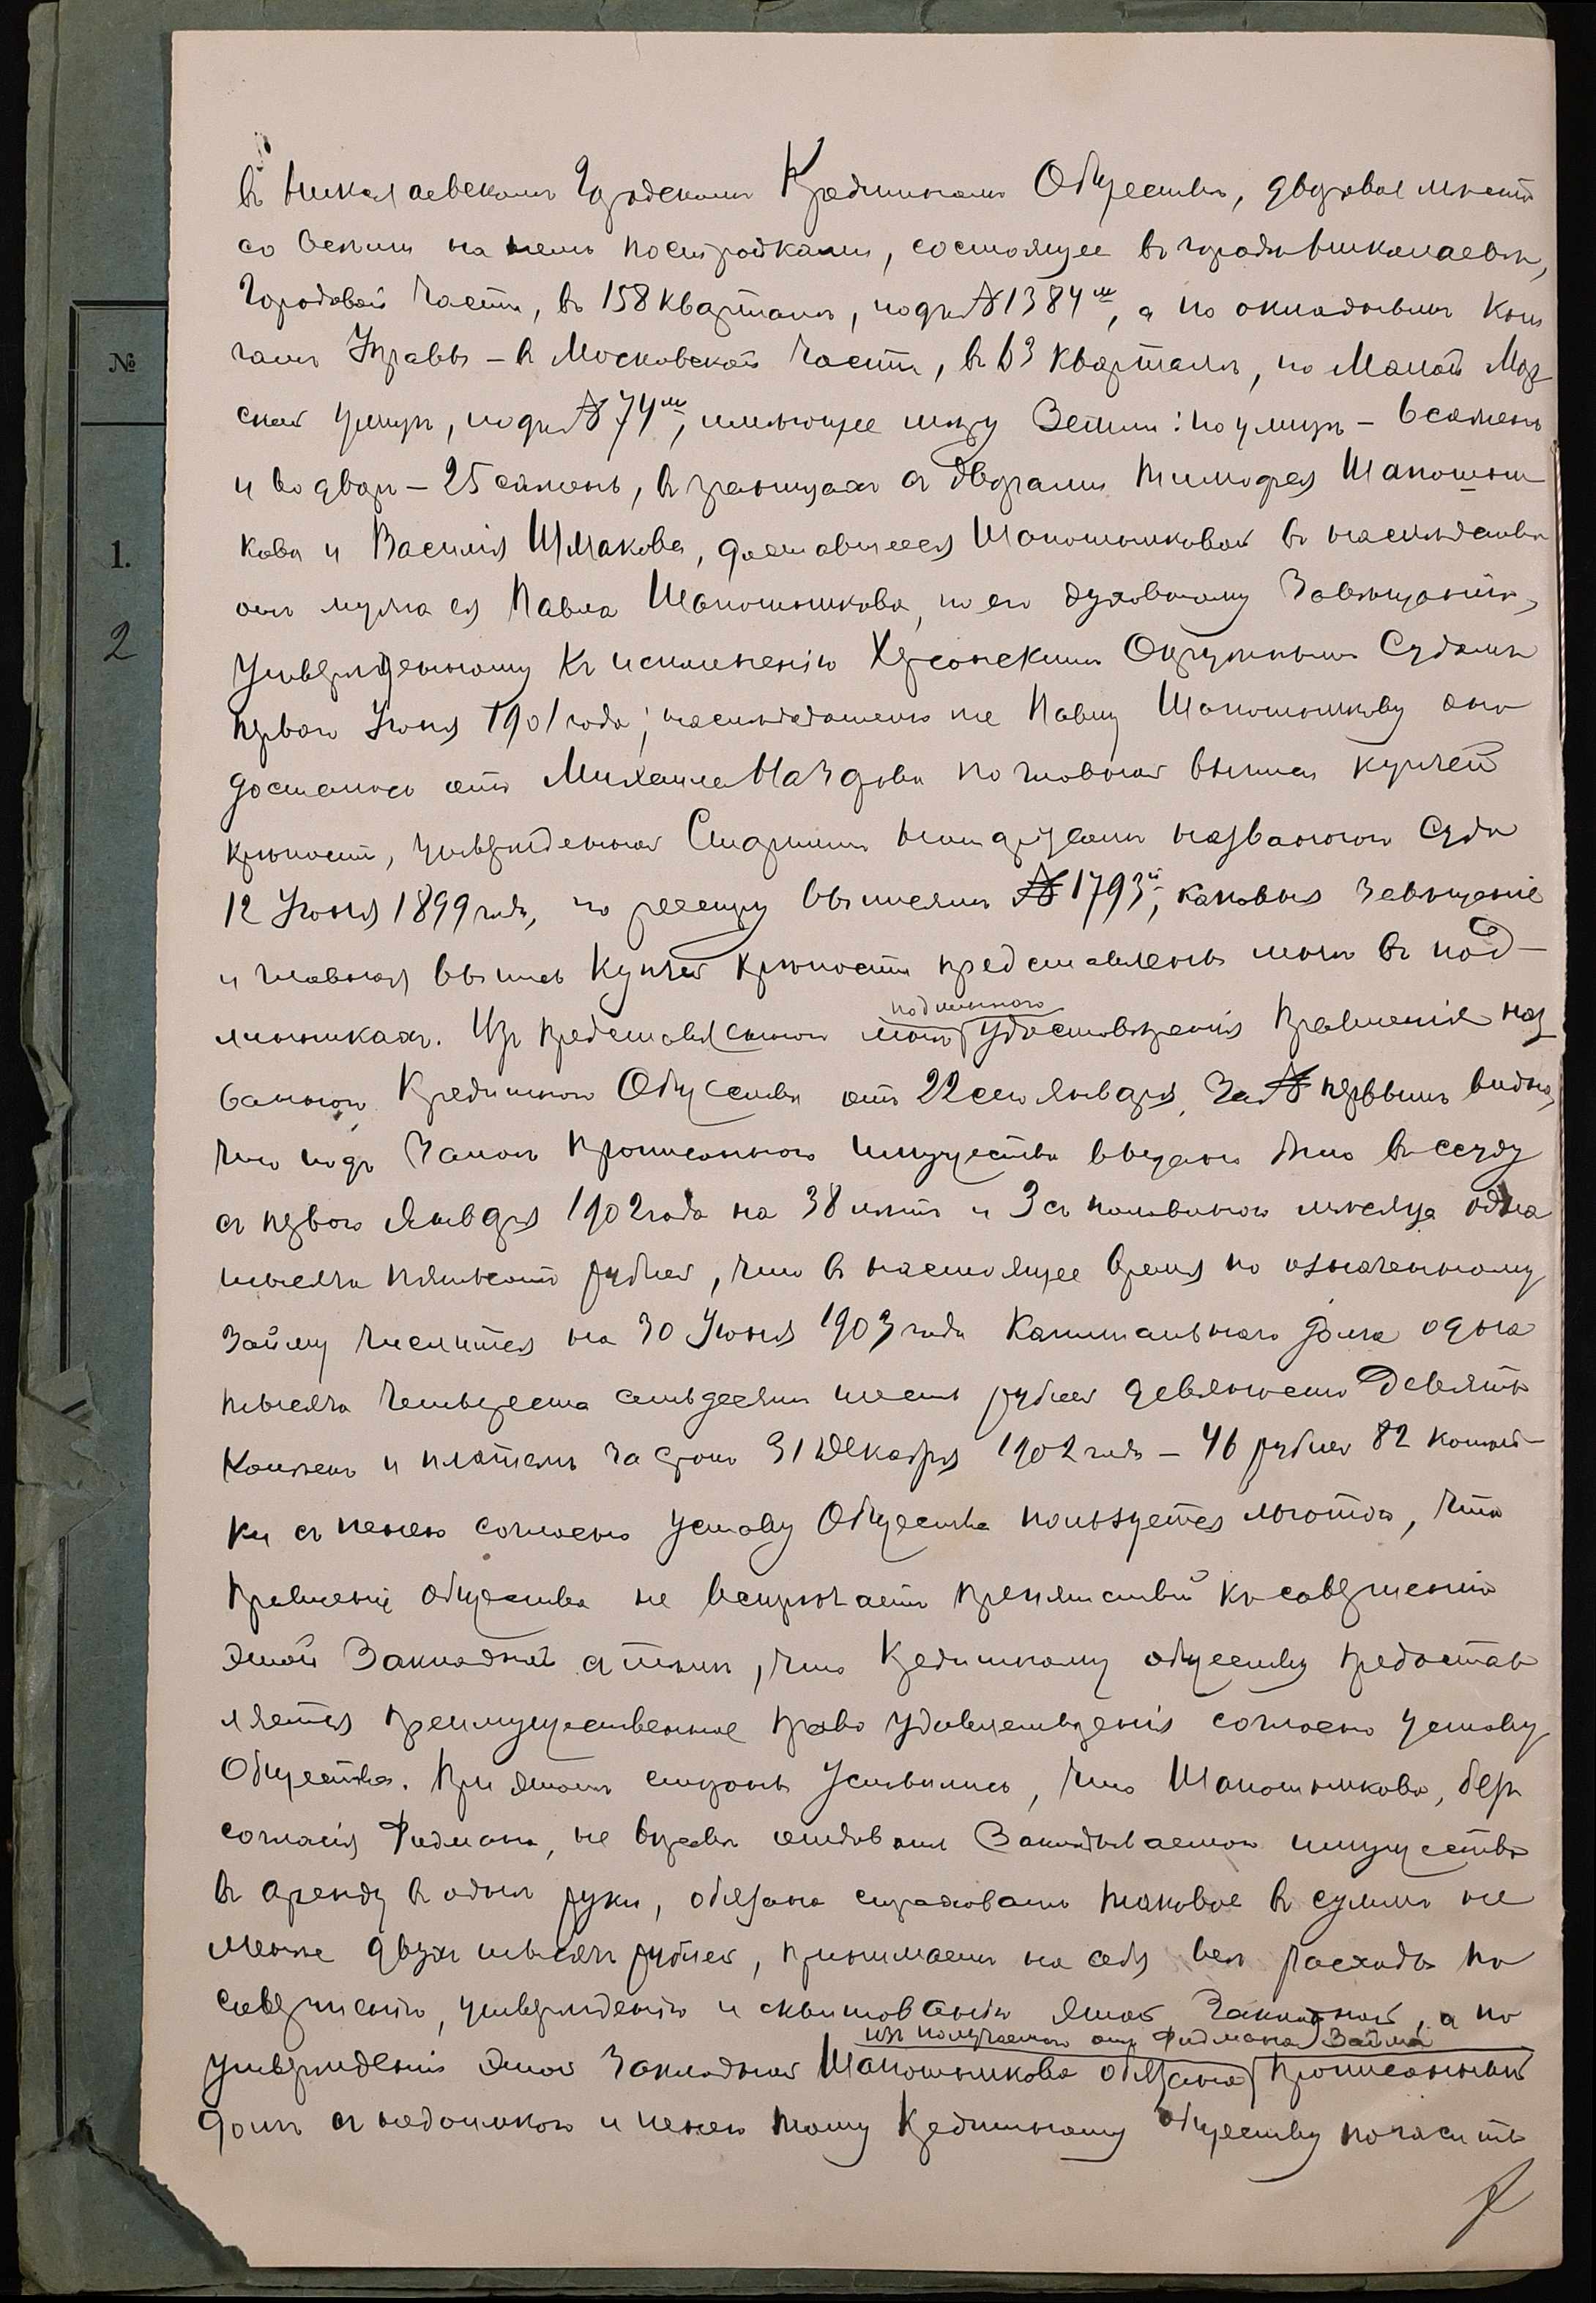 въ Николаевскомъ Городскомъ Кредитномъ Обществѣ, дворовое мѣсто
со всѣми на немъ постройками, состоящее въ городѣ Николаевѣ,
Городовой части, въ 158 кварталѣ, подъ № 1384мъ, а по окладнымъ кни
гамъ Управы – въ Московской части, въ 63 кварталѣ, по Малой Мор
ской улицѣ, подъ № 74мъ, имѣющее мѣру земли: по улицѣ – 6 сажень
и во дворъ – 25 сажень, въ границахъ съ дворами Тимофея Шапошни
кова и Василія Шмакова, доставшееся Шапошниковой въ наслѣдство
отъ мужа ея Павла Шапошникова, по его духовному завѣщанію,
утвержденному къ исполненію Херсонскимъ Окружнымъ Судомъ
перваго Іюня 1901 года; наслѣдодателю же Павлу Шапошникову оно
досталось отъ Михаила по главной выписи купчей
крѣпости, утвержденной Старшимъ Нотаріусомъ названнаго Суда
12 Іюня 1899 года, по реестру выписямъ № 1793й, каковыя завѣщаніе
и главная выпись купчей крѣпости представлены мнѣ въ под-
линникахъ. Изъ представленнаго мнѣ удостовѣренія Правленія наз
подлиннаго
ваннаго Кредитнаго Общества отъ 22 сего Января за № первымъ видно,
что подъ залогъ прописаннаго имущества выдано было въ ссуду
съ перваго Января 1902 года на 38 лѣтъ и 3 съ половиною мѣсяца одна
тысяча пятьсотъ рублей, что въ настоящее время по означенному
займу числится на 30 Іюня 1903 года капитальнаго долга одна
тысяча четыреста семьдесятъ шесть рублей девяносто девять
копѣекъ и платежъ за срокъ 31 Декабря 1902 года – 46 рублей 82 копѣй-
ки съ пенею согласно уставу Общества пользуется льготою, что
Правленіе общества не встрѣчаетъ препятствій къ совершенію
этой закладной съ тѣмъ, что Кредитному обществу предостав
ляется преимущественное право удовлетворенія согласно уставу
Общества. При этомъ стороны условились, что Шапошникова, безъ
согласія Фидмана, не вправѣ отдавать закладываемое имущество
въ аренду въ однѣ руки, обязана страховать таковое въ суммѣ не
менѣе двухъ тысячъ рублей, принимаетъ на себя всѣ расходы по
совершенію, утвержденію и сквитованію этой закладной, а по
изъ получаемаго отъ Фидмана займа
утвержденіи этой закладной Шапошникова обязана прописанный
долгъ съ недоимкою и пенею тому Кредитному обществу погасить
№
1.
2